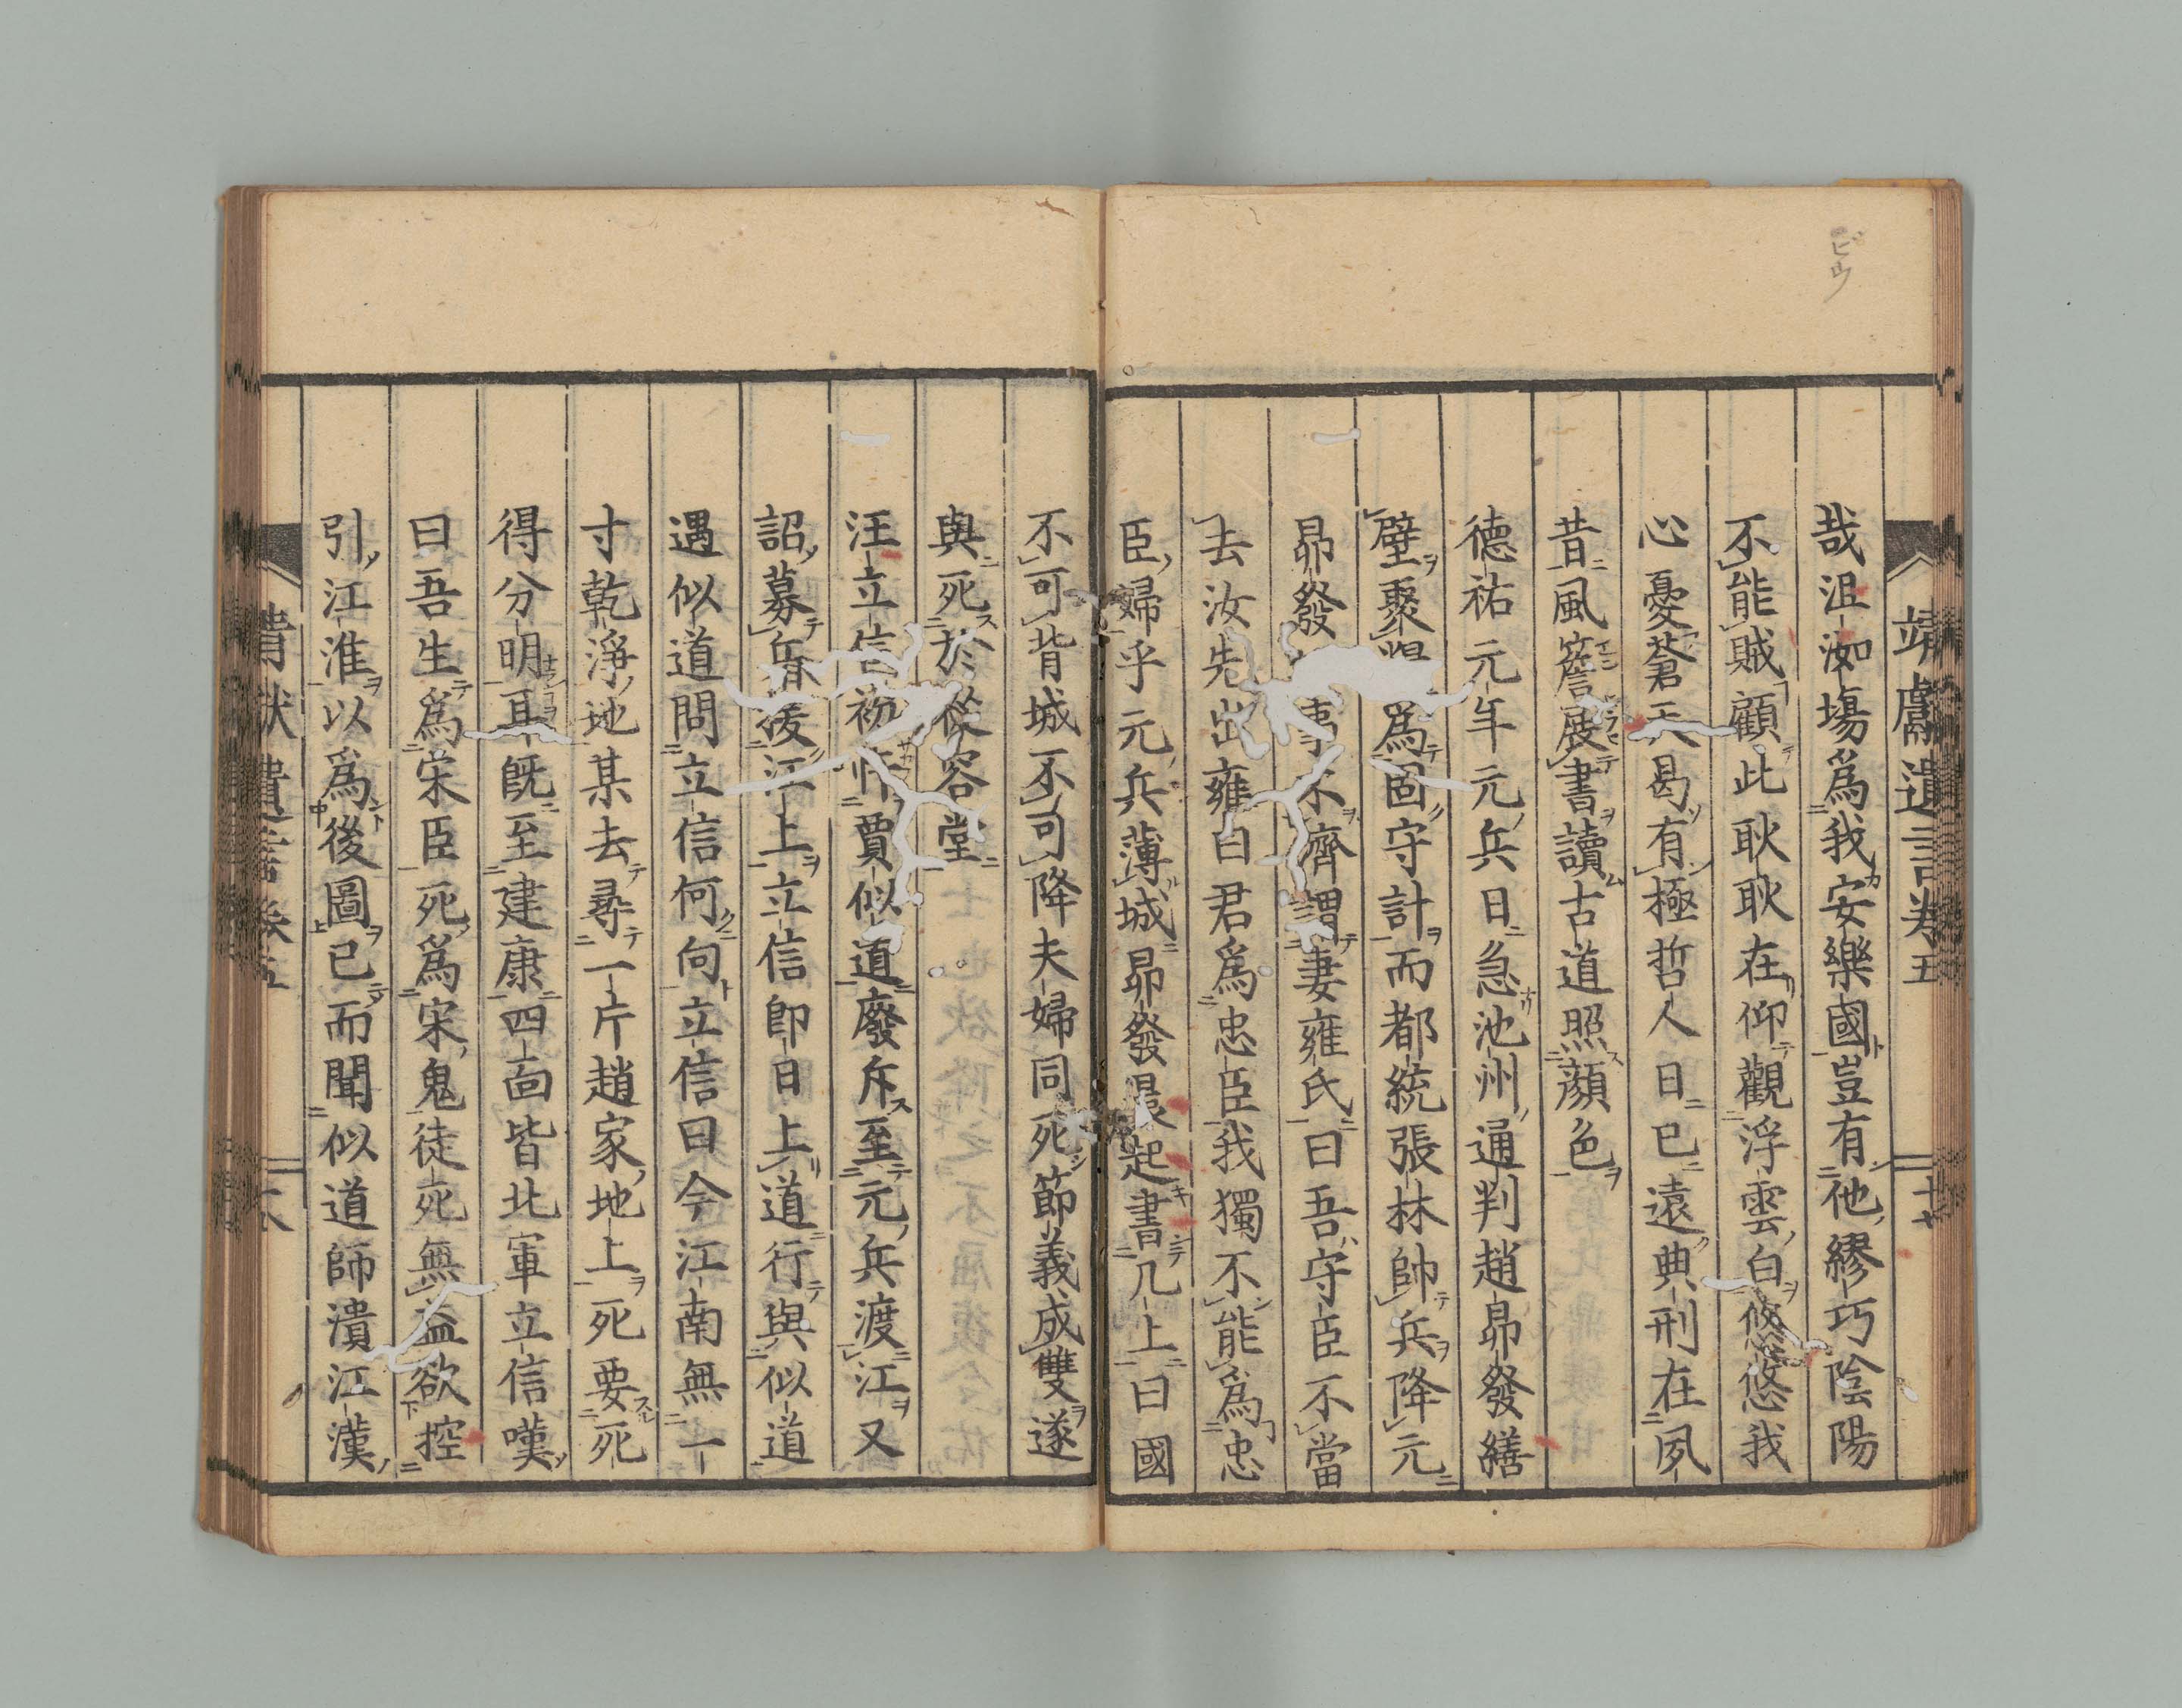 ビウ
靖獻遺言卷五
十七
哉沮洳場爲我安樂國豈有他繆巧陰陽
不能賊顧此耿耿在仰觀浮雲白悠悠我
心憂蒼天曷有極哲人日已遠典刑在夙
昔風簷展書讀古道照顔色
德祐元年元兵日急池州通判趙昴發繕
壁聚爲固守計而都統張林帥兵降元
昴發事不濟謂妻雍氏曰吾守臣不當
去汝先出雍曰君爲忠臣我獨不能爲忠
臣婦乎元兵薄城昴發晨起書几上曰國
不可背城不可降夫婦同死節義成雙遂
與死於從容堂
汪立信初忤賈似道廢斥至元兵渡江又
詔募兵援江上立信卽日上道行與似道
遇似道問立信何向立信曰今江南無一
寸乾淨地某去尋一片趙家地上死要死
得分明耳旣至建康四面皆北軍立信嘆
曰吾生爲宋臣死爲宋鬼徒死無益欲控
引江淮以爲後圖已而聞似道師潰江漢